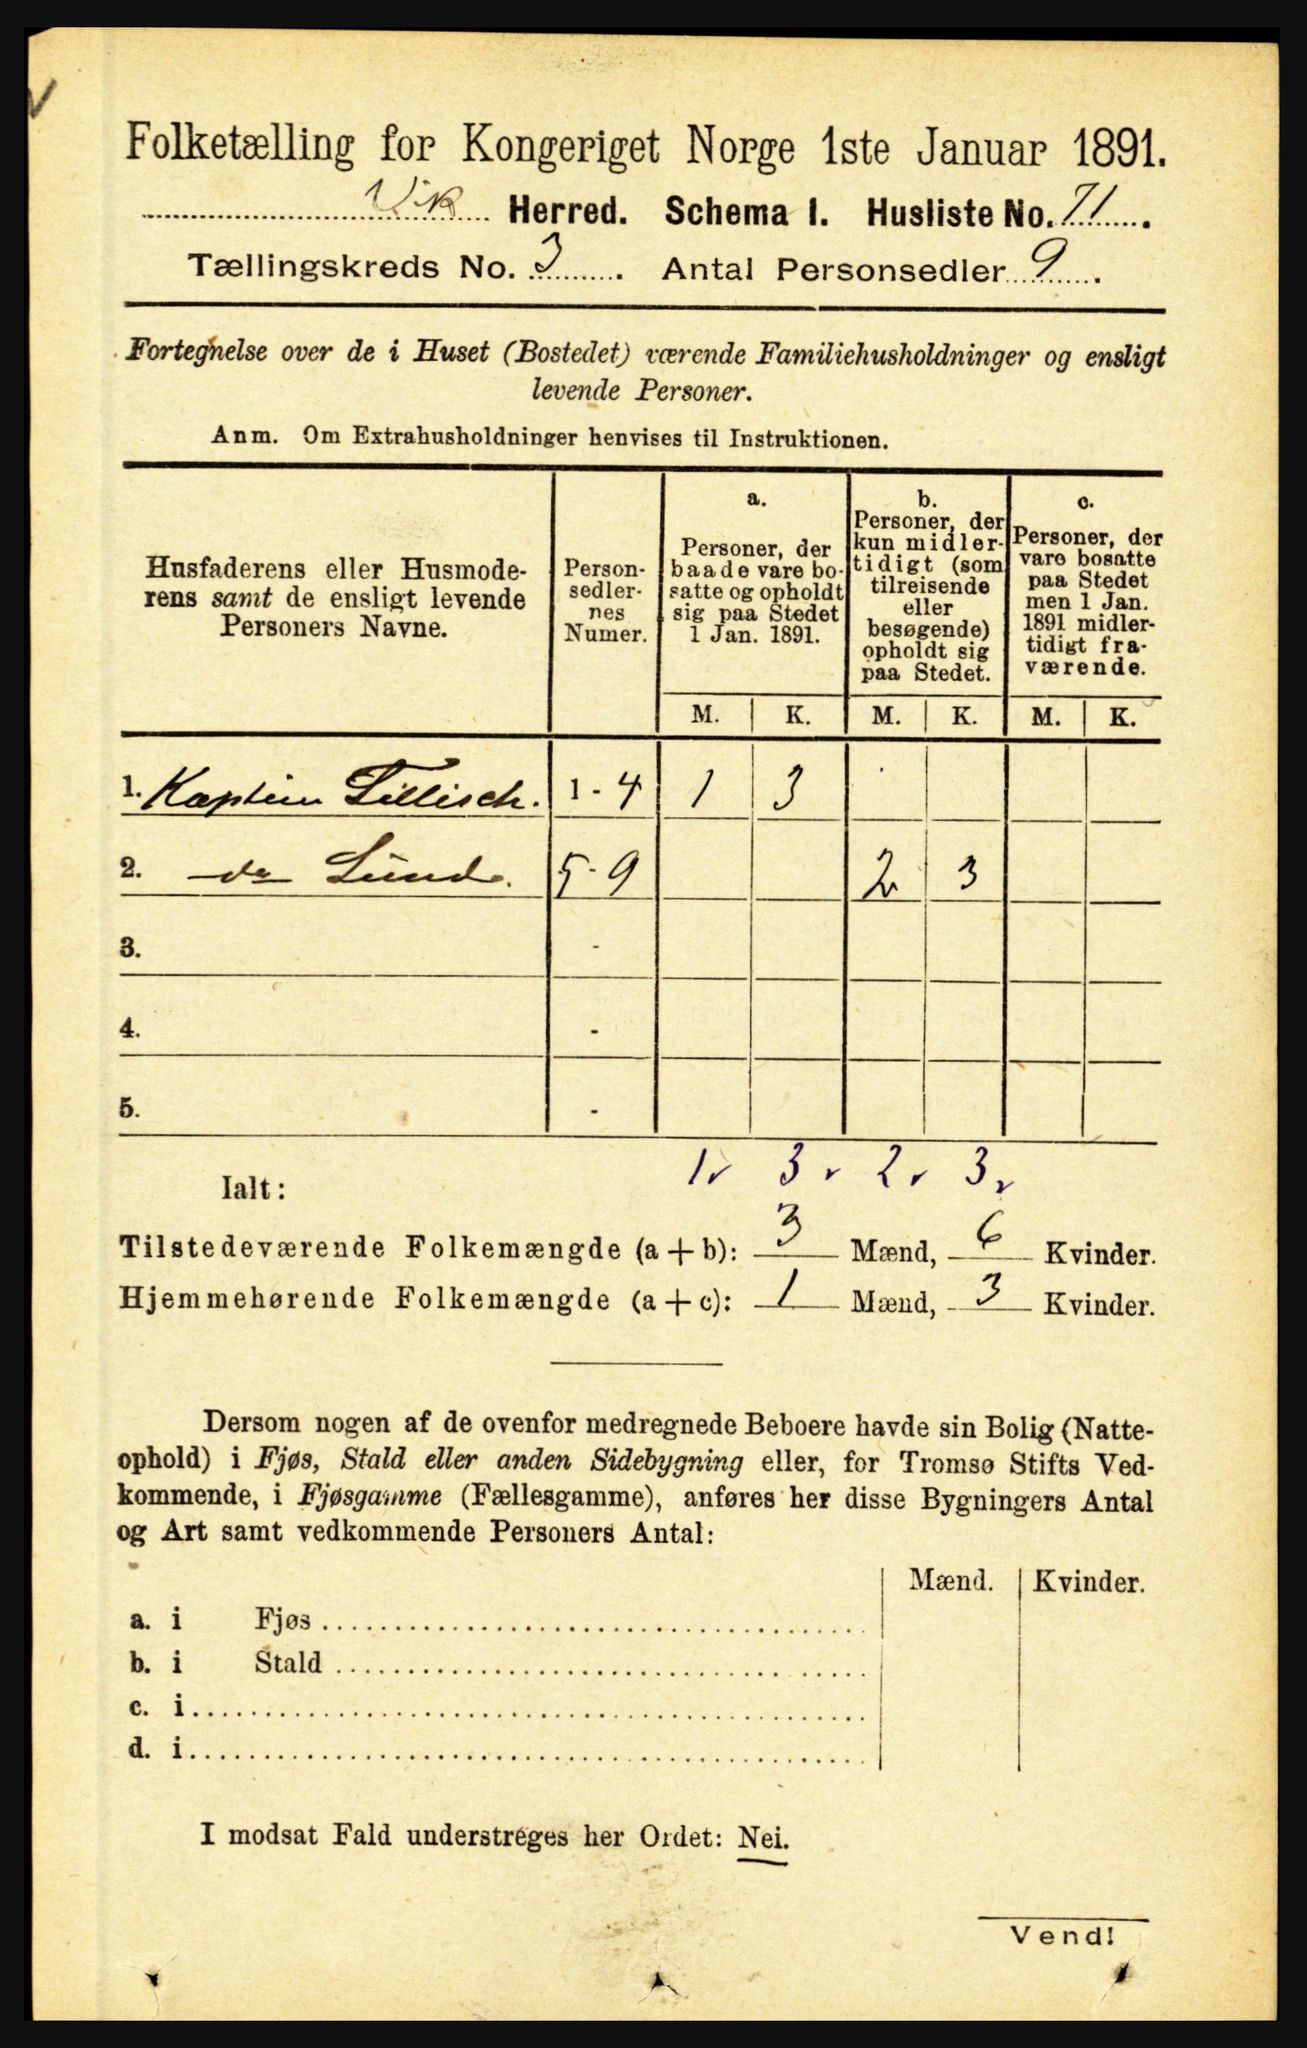 Folketælling for Kongeriget Norge 1ste Januar 1891.
Vik Herred. Schema I. Husliste No. 71.
Tællingskreds No. 3. Antal Personsedler 9.
Fortegnelse over de i Huset (Bostedet) værende Familiehusholdninger og ensligt
levende Personer.
Anm. Om Extrahusholdninger henvises til Instruktionen.
Husfaderens eller Husmode-
rens samt de ensligt levende
Personers Navne.
Person-
sedler-
nes
Numer.
a.
Personer, der
baade vare bo-
satte og opholdt
sig paa Stedet
1 Jan. 1891.
b.
Personer, der
kun midler-
tidigt (som
tilreisende
eller
besøgende)
opholdt sig
paa Stedet.
c.
Personer, der
vare bosatte
paa Stedet
men 1 Jan.
1891 midler-
tidigt fra-
værende.
M. K. M. K. M. K.
1. Kaptein Tillisch. 1 - 4 1 3
2. do Lund. 5 - 9 2 3
3. -
4. -
5. -
1 3 2 3
Ialt:
Tilstedeværende Folkemængde (a + b): 3 Mænd, 6 Kvinder.
Hjemmehørende Folkemængde (a + c): 1 Mænd, 3 Kvinder.
Dersom nogen af de ovenfor medregnede Beboere havde sin Bolig (Natte-
ophold) i Fjøs, Stald eller anden Sidebygning eller, for Tromsø Stifts Ved-
kommende, i Fjøsgamme (Fællesgamme), anføres her disse Bygningers Antal
og Art samt vedkommende Personers Antal:
Mænd. Kvinder.
a. i Fjøs
b. i Stald
c. i
d. i
I modsat Fald understreges her Ordet: Nei.
Vend!